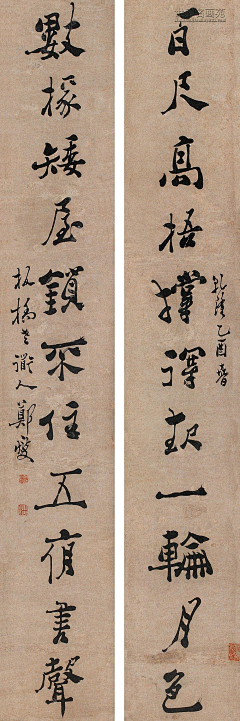 百尺高梧撑得起一輪月色
乾隆乙酉春
數椽矮屋鎖不住五夜書聲
板橋老謝人鄭燮